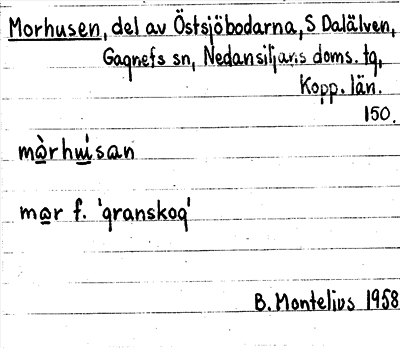 Morhusen, del av Östsjöbodarna, S Dalälven,
Gagnefs sn, Nedansiljans doms. tg,
Kopp. län.
150.
màrhu̇san
mar f. 'granskog'
B. Montelius 1958